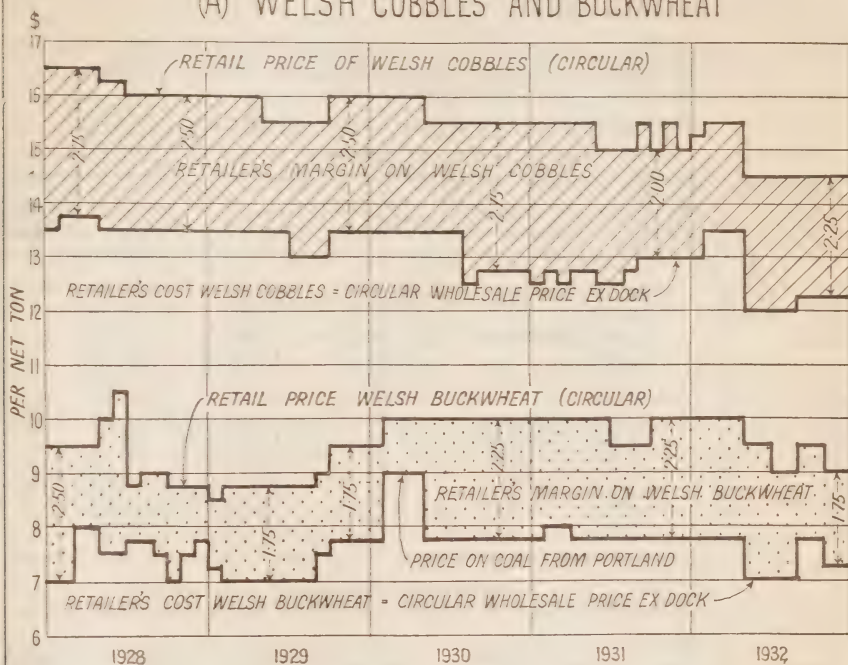 (A) WELSH COBBLES AND BUCKWHEAT
$
17
16
15
14
13
12
11
10
9
8
7
6
PER NET TON
RETAIL PRICE OF WELSH COBBLES (CIRCULAR)
2.75
2.50
2.50
RETAILER'S MARGIN ON WELSH COBBLES
2.75
2.00
2.25
RETAILER'S COST WELSH COBBLES = CIRCULAR WHOLESALE PRICE EX DOCK
RETAIL PRICE WELSH BUCKWHEAT (CIRCULAR)
2.50
1.75
1.75
2.25
2.25
RETAILER'S MARGIN ON WELSH BUCKWHEAT
1.75
PRICE ON COAL FROM PORTLAND
RETAILER'S COST WELSH BUCKWHEAT = CIRCULAR WHOLESALE PRICE EX DOCK
1928 1929 1930 1931 1932